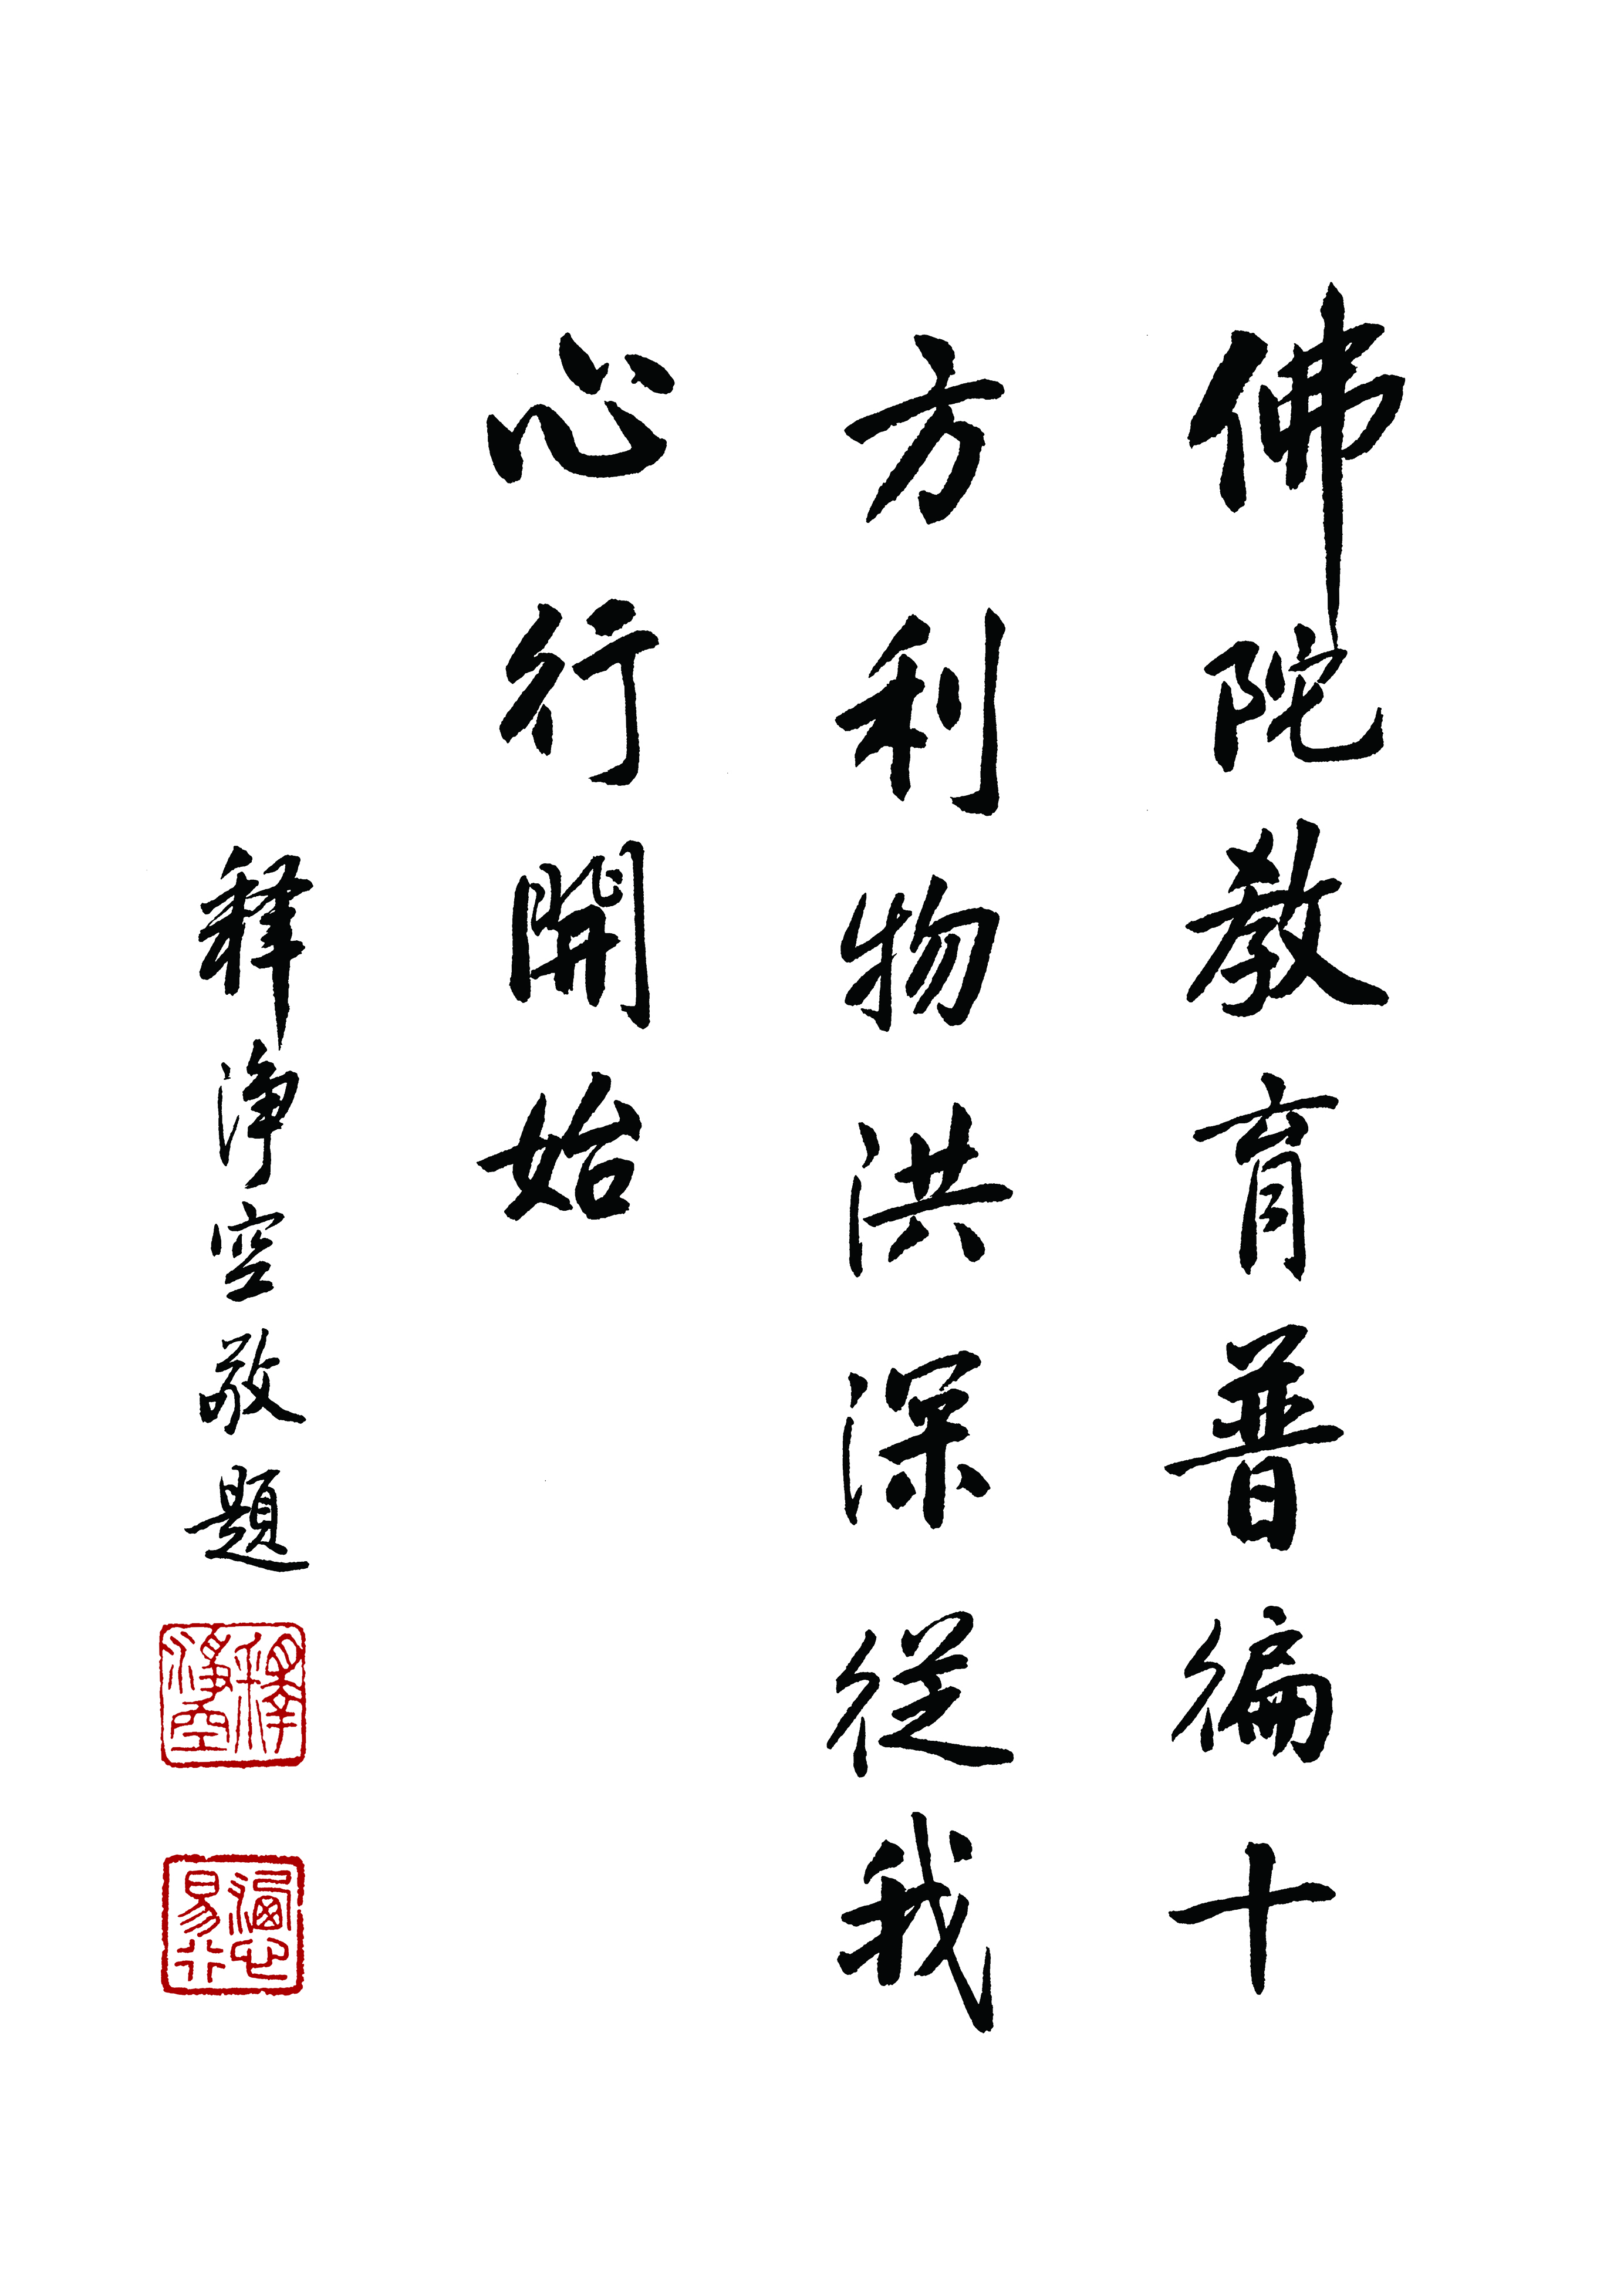 佛陀教育普徧十
方利物洪深從我
心行開始
釋淨空敬題
釋淨空